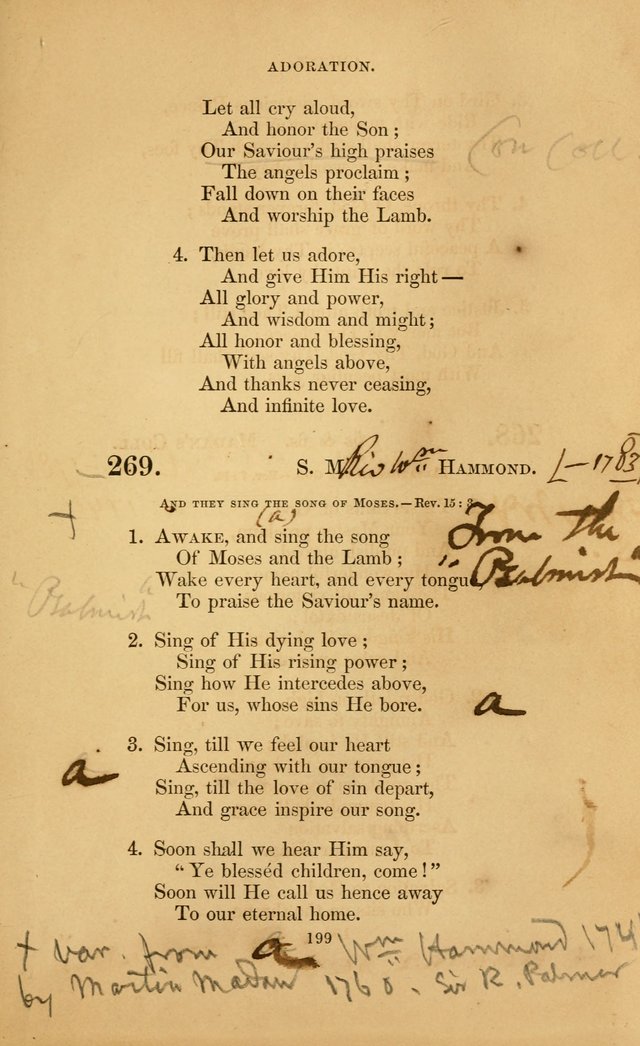 ADORATION.
Let all cry aloud,
And honor the Son;
Our Saviour's high praises
The angels proclaim;
Fall down on their faces
And worship the Lamb.
4. Then let us adore,
And give Him His right—
All glory and power,
And wisdom and might;
All honor and blessing,
With angels above,
And thanks never ceasing,
And infinite love.
269. S. M. Wm HAMMOND. — 1783
AND THEY SING THE SONG OF MOSES.—Rev. 15:3
+ (a)
1. AWAKE, and sing the song
From the
Of Moses and the Lamb;
Wake every heart, and every tongue,
"Psalmist"
"Psalmist"
To praise the Saviour's name.
2. Sing of His dying love;
Sing of His rising power;
Sing how He intercedes above,
For us, whose sins He bore. a
3. Sing, till we feel our heart
a Ascending with our tongue;
Sing, till the love of sin depart,
And grace inspire our song.
4. Soon shall we hear Him say,
"Ye blesséd children, come!"
Soon will He call us hence away
To our eternal home.
199
+ var. from a Wm Hammond 174
by Martin Madan 1760. Sir R. Palmer